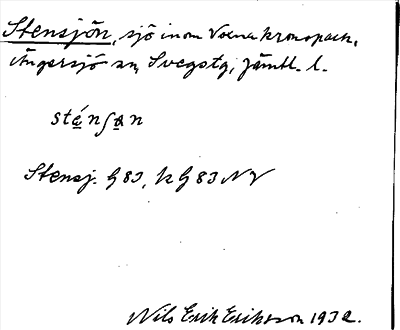 Stensjön, sjö inom Voxna kronopark,
Ängersjö sn, Svegstg, Jämtl. l.
sténʃɵn
Stensj. G 83, k G 83 NV
Nils Erik Eriksson 1932.